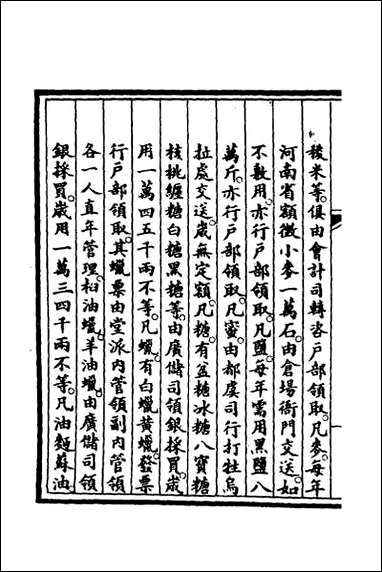 稜米等。俱由會計司轉咨戶部領取。凡麥。每年
河南省額徵小麥一萬石。由倉場衙門交送。如
不敷用。亦行戶部領取。凡鹽。每年需用黑鹽八
萬斤。亦行戶部領取。凡蜜。由都虞司行打牲烏
拉處交送。歲無定額。凡糖。有盆糖冰糖八寶糖
核桃纏糖白糖黑糖等。由廣儲司領銀採買。歲
用一萬四五千兩不等。凡蠟。有白蠟黃蠟。發票
行戶部領取。其蠟票由堂派內管領副內管領
各一人直年管理。桕油蠟。羊油蠟。由廣儲司領
銀採買。歲用一萬三四千兩不等。凡油麵蘇油